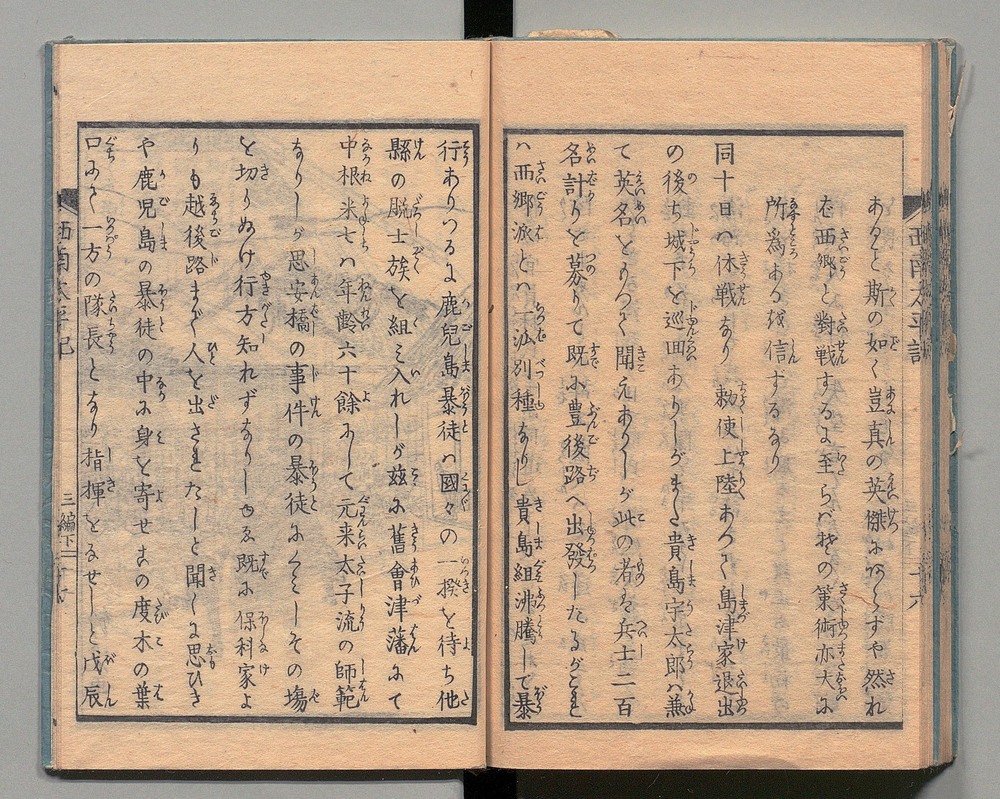 あると斯の如く豈真の英傑にあらずや然れ
在西郷と對戦するに至らバその策術亦大に
所爲ある越信ずるなり
同十日ハ休戦なり勅使上陸あつて島津家退出
の後ち城下を巡回ありしがまた貴島宇太郎ハ兼
て英名をもつて聞えありしが此の者を兵士二百
名計りを募りて既に豊後路へ出發したるがこも
ハ西郷派とハ一派別種なりし貴島組沸騰して暴
行ありつるに鹿兒島暴徒ハ國々の一揆を待ち他
縣の脱士族を組ミ入れしが茲に舊會津藩にて
中根米七ハ年齢六十餘にして元来太子流の師範
なりしが思安橋の事件の暴徒にくミしその塲
を切りぬけ行方知れずなりしゆゑ既に保科家よ
りも越後路まで人を出させたしと聞しに思ひき
や鹿児島の暴徒の中に身を寄せまの度木の葉
口にて一方の隊長となり指揮をなせしと戊辰
西南太平記
三編下